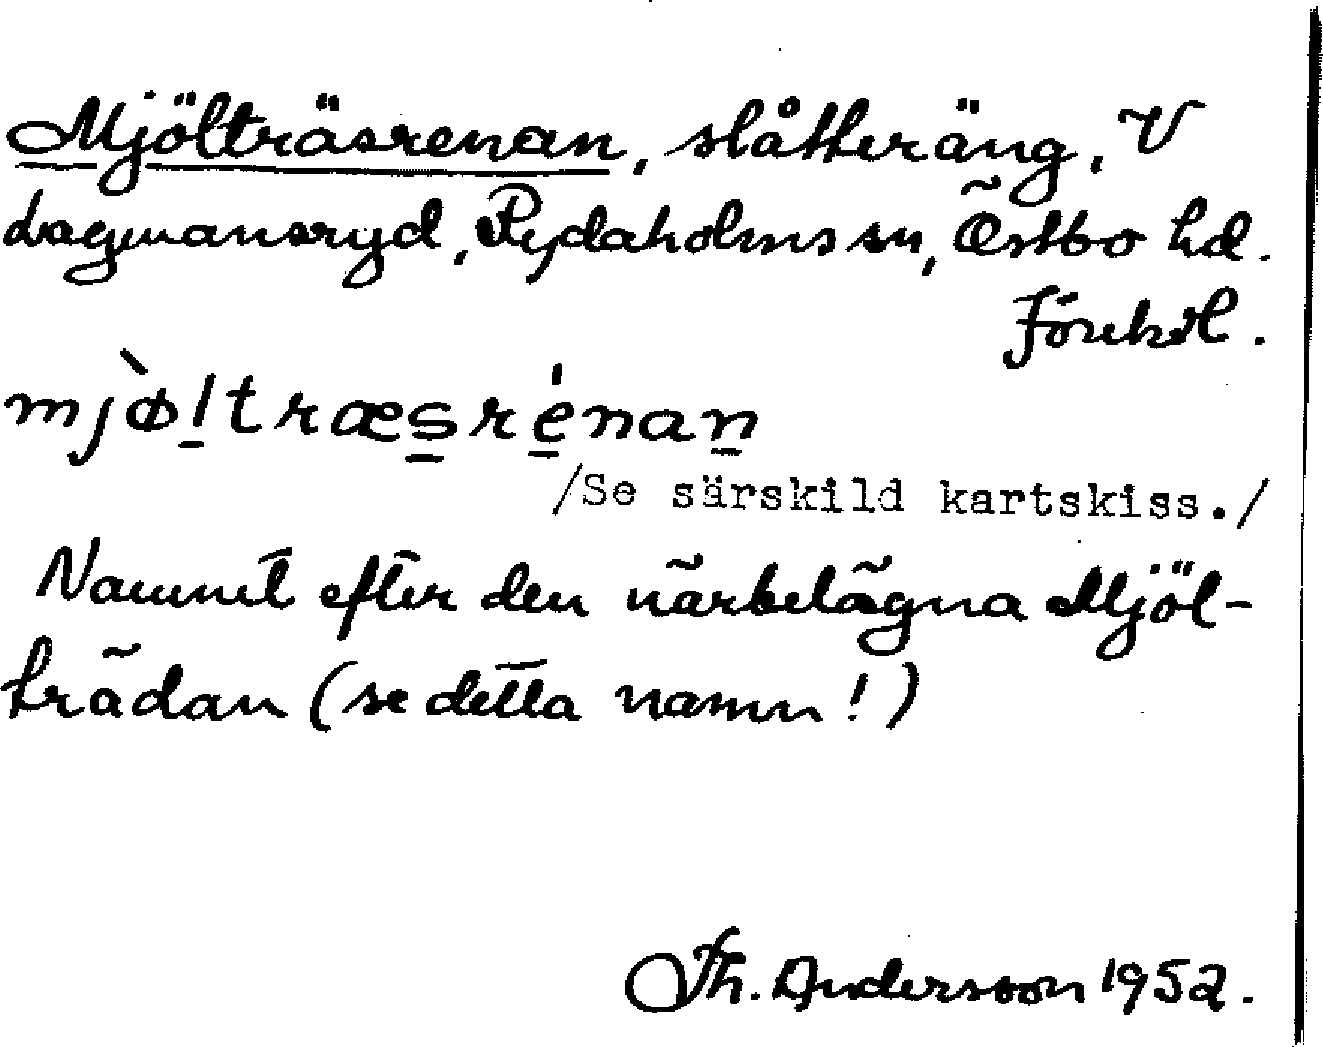 Mjölträsrenan, slåtteräng, V
Lagmansryd, Rydaholms sn, Östbo hd.
Jönk. l.
mjø̀l̠træs̠rén̠an̠
/Se särskild kartskiss./
Namnet efter den närbelägna Mjöl-
trädan (se detta namn!)
Th. Andersson 1952.